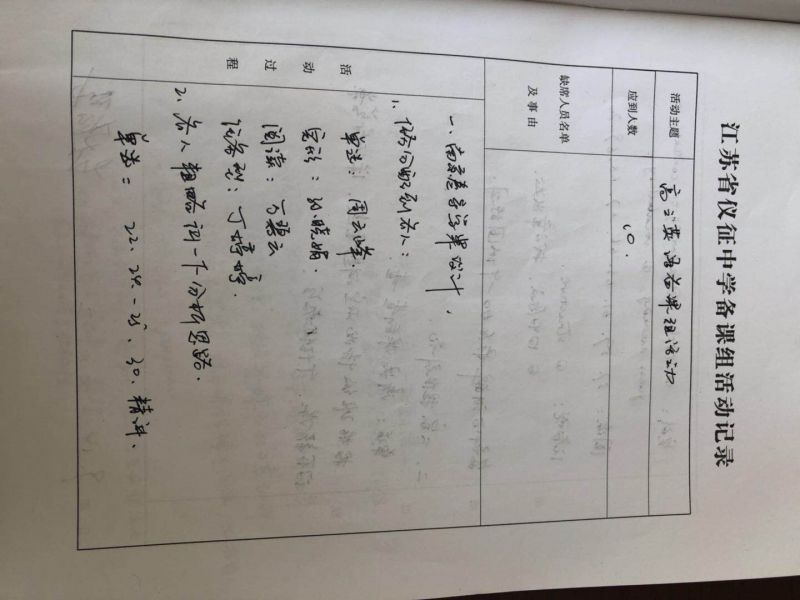 江苏省仪征中学备课组活动记录
活动主题 高三英语备课组活动
应到人数 10.
缺席人员名单
及事由
活动过程
一、南京卷导学案设计.
1、任务分配到各人:
单选: 周云峰.
完形: 孙晓娟.
阅读: 万碧云
任务型: 丁婷婷.
2、各人粗略讲一下分析思路.
单选: 22、24-25、30. 精讲、